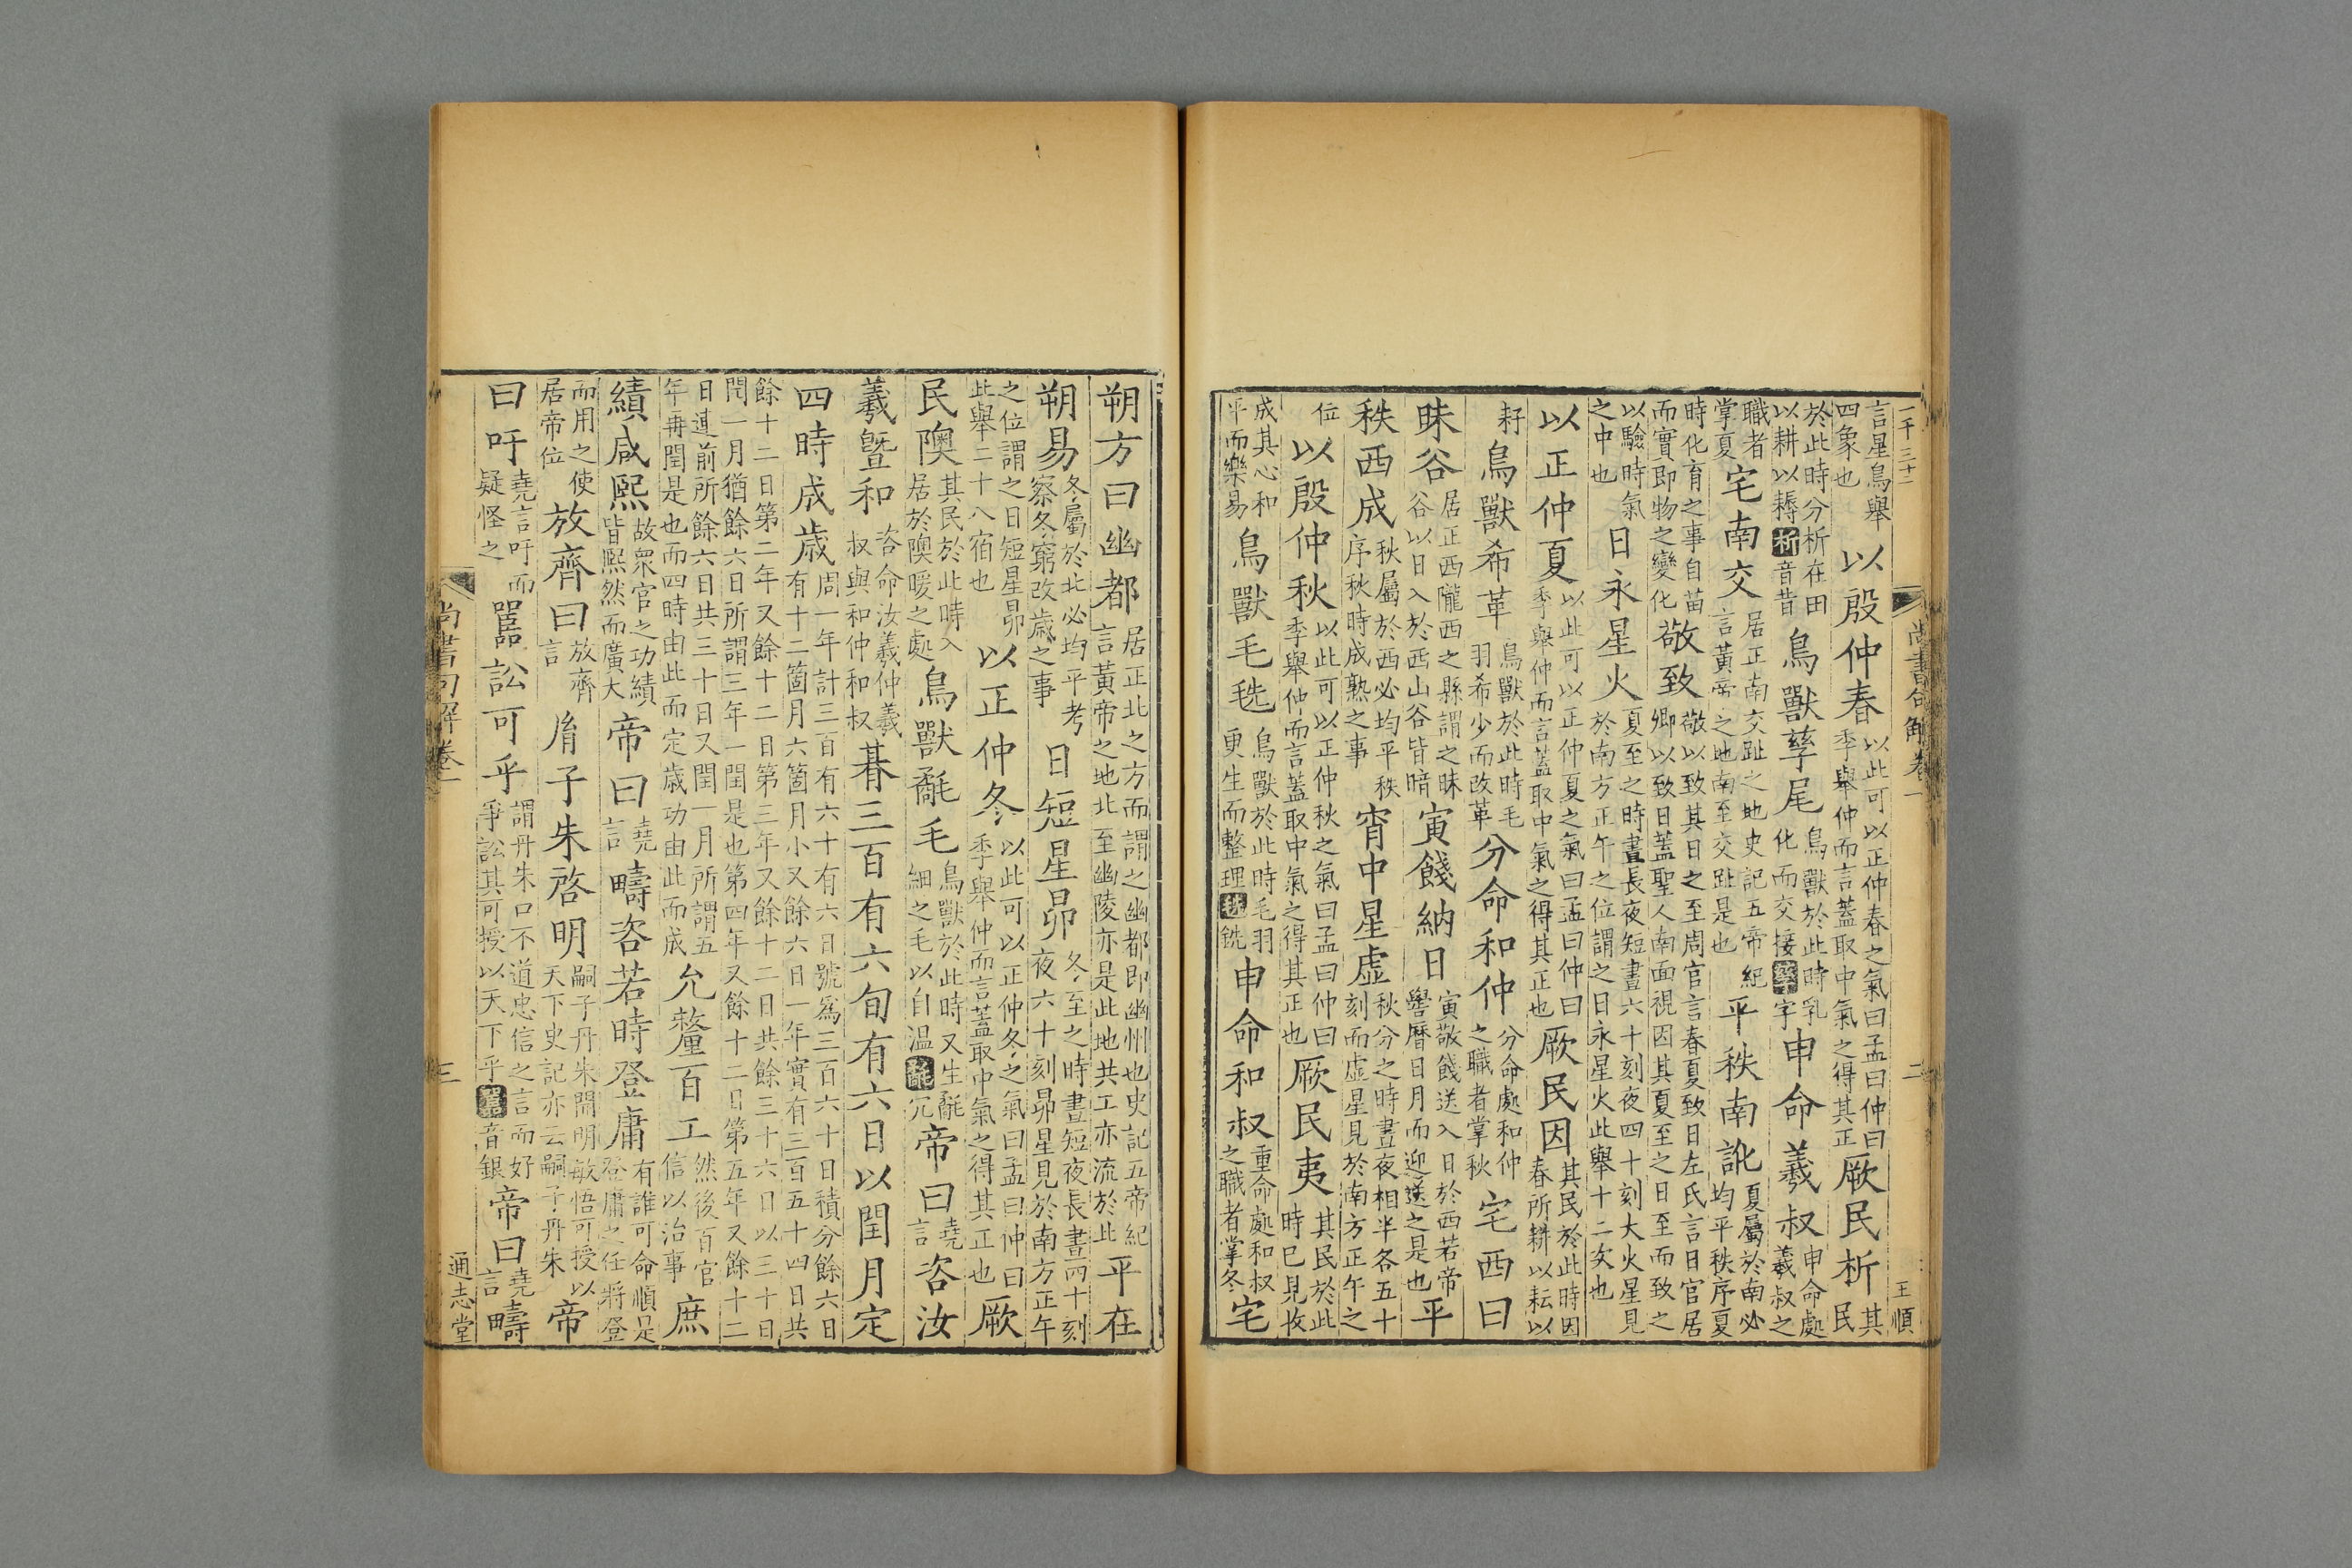 一千三十二 尚書句解卷一 二 王順
言星鳥舉四象也以殷仲春以此可以正仲春之氣曰孟曰仲曰季舉仲而言蓋取中氣之得其正厥民析其民
於此時分析在田以耕以耨析音昔鳥獸孳尾鳥獸於此時乳化而交接孳字申命羲叔申命處羲叔之
職者掌夏宅南交居正南交趾之地史記五帝紀言黃帝之地南至交趾是也平秩南訛夏屬於南必均平秩序夏
時化育之事自苗而實即物之變化敬致敬以致其日之至周官言春夏致日左氏言日官居卿以致日蓋聖人南面視因其夏至之日至而致之
以驗時氣之中也日永星火夏至之時晝長夜短晝六十刻夜四十刻大火星見於南方正午之位謂之日永星火此舉十二次也
以正仲夏以此可以正仲夏之氣曰孟曰仲曰季舉仲而言蓋取中氣之得其正也厥民因其民於此時因春所耕以耘以
耔鳥獸希革鳥獸於此時毛羽希少而改革分命和仲分命處和仲之職者掌秋宅西曰
昧谷居正西隴西之縣謂之昧谷以日入於西山谷皆暗寅餞納日寅敬餞送入日於西若帝嚳曆日月而迎送之是也平
秩西成秋屬於西必均平秩序秋時成熟之事宵中星虛秋分之時晝夜相半各五十刻而虛星見於南方正午之
位以殷仲秋以此可以正仲秋之氣曰孟曰仲曰季舉仲而言蓋取中氣之得其正也厥民夷其民於此時已見收
成其心和平而樂易鳥獸毛毨鳥獸於此時毛羽更生而整理毨銑申命和叔重命處和叔之職者掌冬宅
朔方曰幽都居正北之方而謂之幽都即幽州也史記五帝紀言黃帝之地北至幽陵亦是此地共工亦流於此平在
朔易冬屬於北必均平考察冬窮改歲之事日短星昴冬至之時晝短夜長晝四十刻夜六十刻昴星見於南方正午
之位謂之日短星昴此舉二十八宿也以正仲冬以此可以正仲冬之氣曰孟曰仲曰季舉仲而言蓋取中氣之得其正也厥
民隩其民於此時入居於隩暖之處鳥獸氄毛鳥獸於此時又生氄細之毛以自溫氄冗帝曰堯言咨汝
羲暨和咨命汝羲仲羲叔與和仲和叔朞三百有六旬有六日以閏月定
四時成歲周一年計三百有六十有六日號爲三百六十日積分餘六日有十二箇月六箇月小又餘六日一年實有三百五十四日共
餘十二日第二年又餘十二日第三年又餘十二日共餘三十六日以三十日閏一月猶餘六日所謂三年一閏是也第四年又餘十二日第五年又餘十二
日連前所餘六日共三十日又閏一月所謂五年再閏是也而四時由此而定歲功由此而成允釐百工然後百官信以治事庶
績咸熙故衆官之功績皆熙然而廣大帝曰堯言疇咨若時登庸有誰可命順是登庸之任將登
而用之使居帝位放齊曰放齊言胤子朱啓明嗣子丹朱開明敏悟可授以天下史記亦云嗣子丹朱帝
曰吁堯言吁而疑怪之嚚訟可乎謂丹朱口不道忠信之言而好爭訟其可授以天下乎嚚音銀帝曰堯言疇
尚書句解卷一 三 通志堂